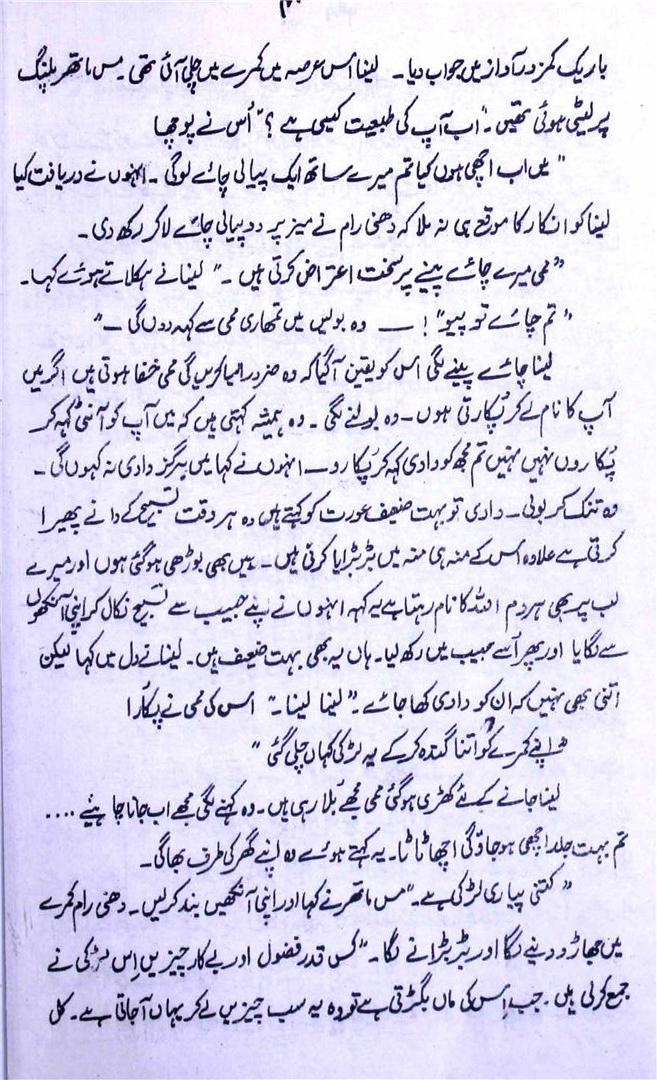 باریک کمزور آواز میں جواب دیا۔ لینا اس عرصہ میں کمرے میں چلی آئی تھی۔ مس ماتھر پلنگ
پر لیٹی ہوئی تھیں۔ "اب آپ کی طبیعت کیسی ہے؟" اُس نے پوچھا
"میں اب اچھی ہوں کیا تم میرے ساتھ ایک پیالی چائے لوگی۔ انہوں نے دریافت کیا
لینا کو انکار کا موقع ہی نہ ملا کہ دھنی رام نے میز پر دو پیالی چائے لا کر رکھ دی۔
"ممی میرے چائے پینے پر سخت اعتراض کرتی ہیں۔" لینا نے ہکلاتے ہوئے کہا۔
"تم چائے تو پیو"! — وہ بولیں میں تمھاری ممی سے کہہ دوں گی —"
لینا چائے پینے لگی اس کو یقین آگیا کہ وہ ضرور ایسا کریں گی ممی خفا ہوتی ہیں اگر میں
آپ کا نام لے کر پُکارتی ہوں۔ وہ بولنے لگی۔ وہ ہمیشہ کہتی ہیں کہ میں آپ کو آنٹی کہہ کر
پُکاروں نہیں نہیں تم مجھ کو دادی کہہ کر پُکارو۔ انہوں نے کہا میں ہرگز دادی نہ کہوں گی۔
وہ تنک کر بولی۔ دادی تو بہت ضعیف عورت کو کہتے ہیں وہ ہر وقت تسبیح کے دانے پھیرا
کرتی ہے علاوہ اس کے منہ ہی منہ میں بڑبڑایا کرتی ہیں۔ میں بھی بوڑھی ہو گئی ہوں اور میرے
لب پر بھی ہر دم اللہ کا نام رہتا ہے یہ کہہ انہوں نے اپنے جیب سے تسبیح نکال کر اپنی آنکھوں
سے لگایا اور پھر اُسے جیب میں رکھ لیا۔ ہاں یہ بھی بہت ضعیف ہیں۔ لینا نے دل میں کہا لیکن
اتنی بھی نہیں کہ ان کو دادی کہا جائے۔" لینا لینا۔" اس کی ممی نے پکارا
"اپنے کمرے کو اتنا گندہ کر کے یہ لڑکی کہاں چلی گئی"
لینا جانے کے لئے کھڑی ہو گئی ممی مجھے بُلا رہی ہیں۔ وہ کہنے لگی مجھے اب جانا چاہئیے ....
تم بہت جلد اچھی ہو جاؤ گی اچھا ٹا ٹا۔ یہ کہتے ہوئے وہ اپنے گھر کی طرف بھاگی۔
"کتنی پیاری لڑکی ہے۔" مس ماتھر نے کہا اور اپنی آنکھیں بند کر لیں۔ دھنی رام کمرے
میں جھاڑو دینے لگا اور بڑبڑانے لگا۔ "کس قدر فضول اور بے کار چیزیں اِس لڑکی نے
جمع کر لی ہیں۔ جب اِس کی ماں بگڑتی ہے تو وہ یہ سب چیزیں لے کر یہاں آ جاتی ہے۔ کل